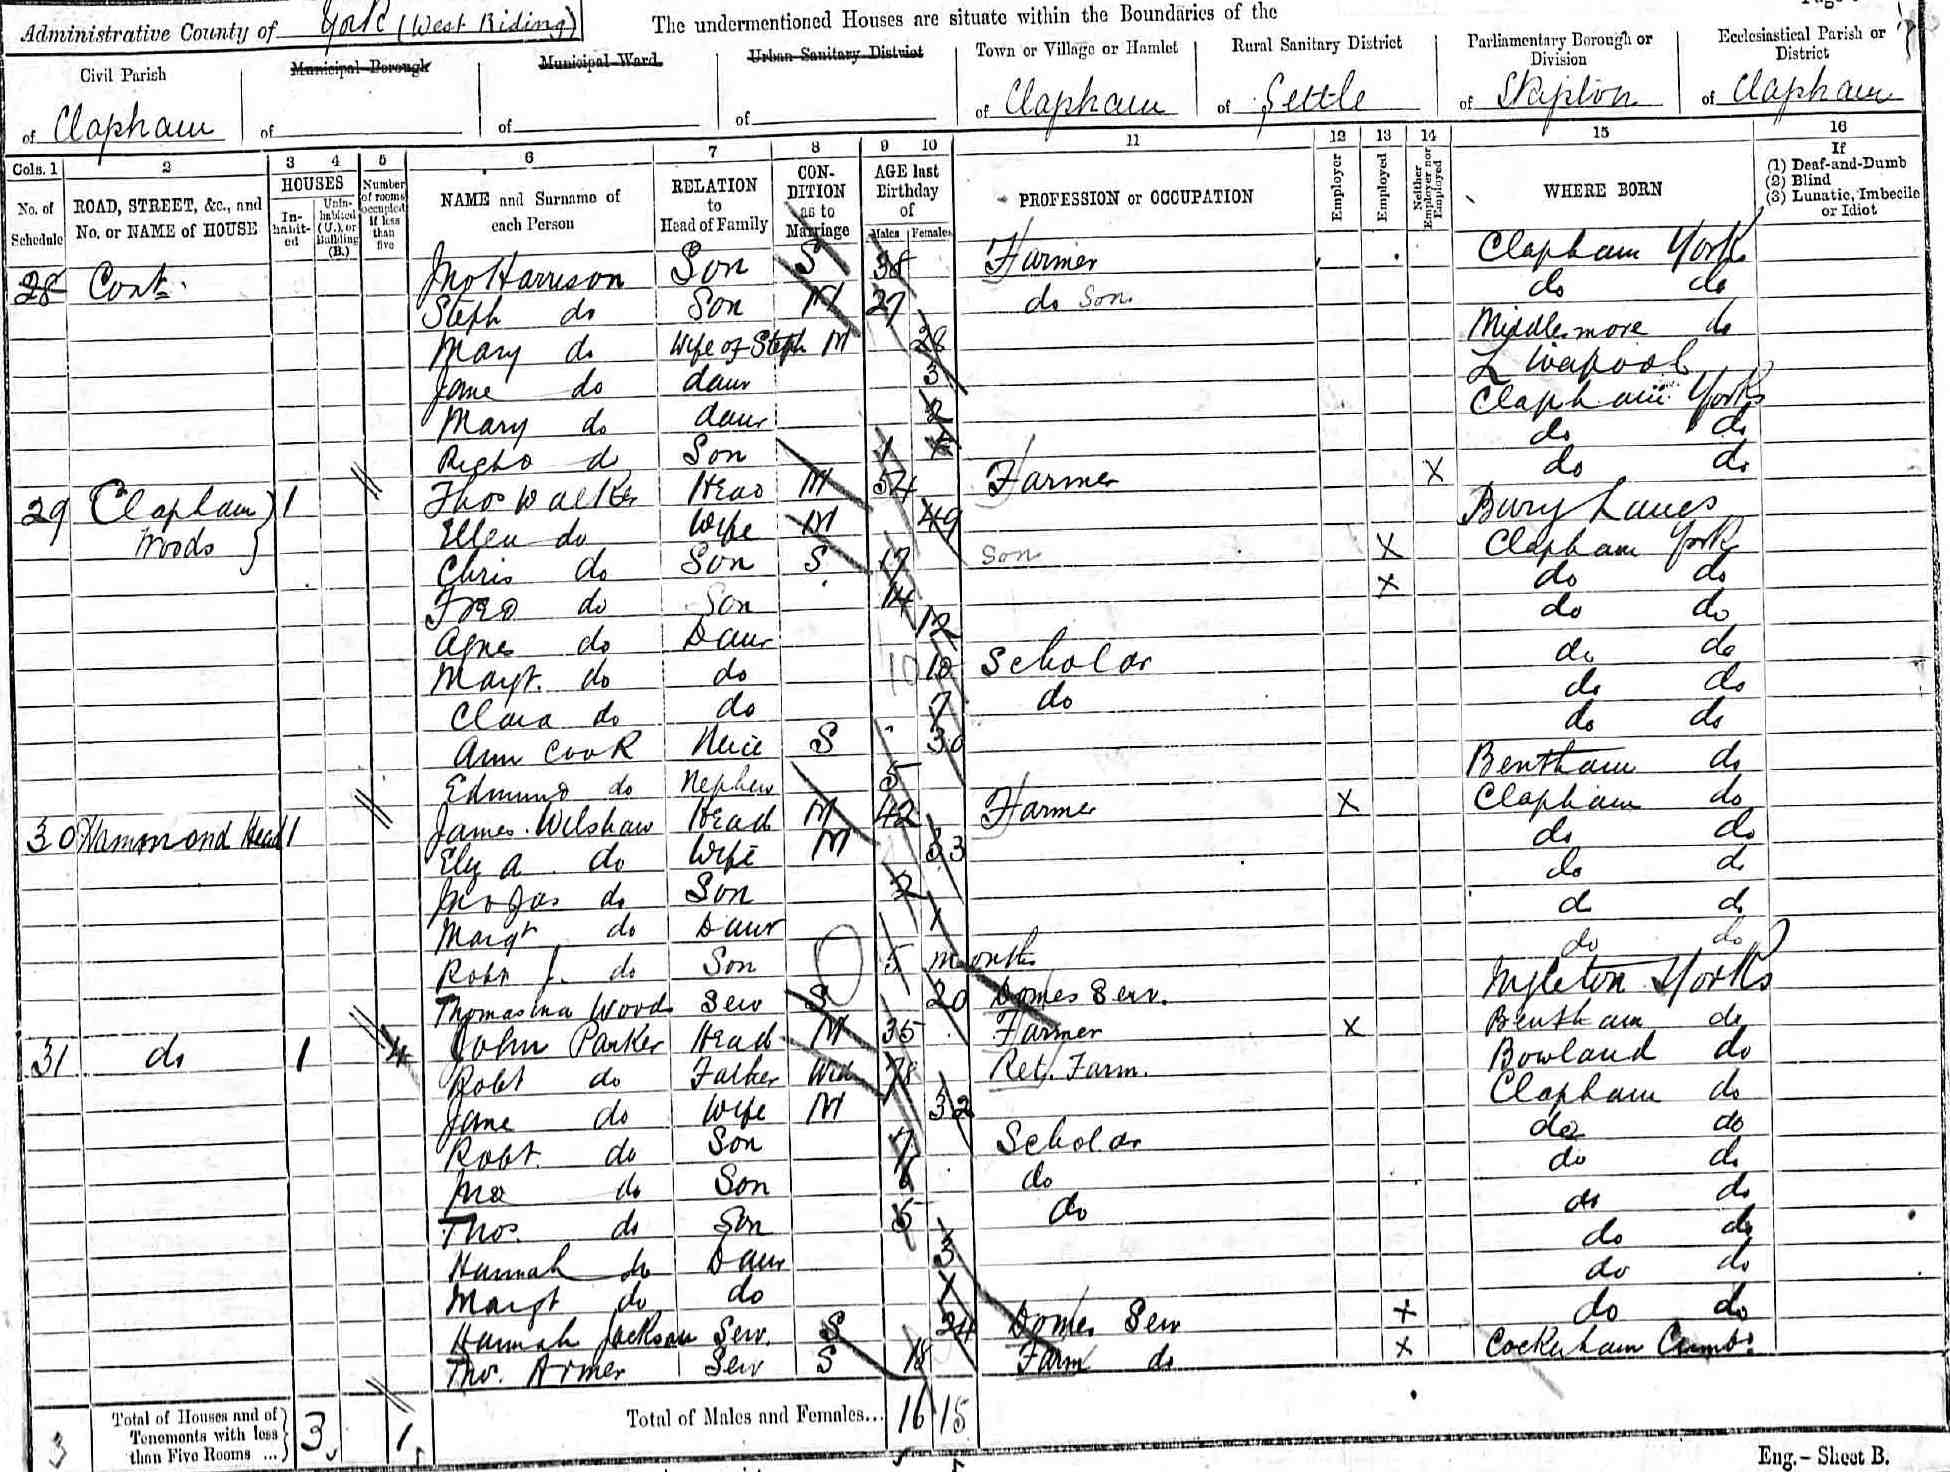 Administrative County of York (West Riding) The undermentioned Houses are situate within the Boundaries of the
Civil Parish of Clapham
Municipal Borough of
Municipal Ward of
Urban Sanitary District of
Town or Village or Hamlet of Clapham
Rural Sanitary District of Settle
Parliamentary Borough or Division of Skipton
Ecclesiastical Parish or District of Clapham
Cols. 1 2 3 4 5 6 7 8 9 10 11 12 13 14 15 16
No. of Schedule
ROAD, STREET, &c., and No. or NAME of HOUSE
HOUSES
In-habit-ed
Unin-habited (U.), or Building (B.)
Number of rooms occupied if less than five
NAME and Surname of each Person
RELATION to Head of Family
CON-DITION as to Marriage
AGE last Birthday of
Males Females
PROFESSION or OCCUPATION
Employer
Employed
Neither Employer nor Employed
WHERE BORN
If
(1) Deaf-and-Dumb
(2) Blind
(3) Lunatic, Imbecile or Idiot
28 Cont. Jno Harrison Son S 38 Farmer Clapham York
Steph do Son M 27 do Son do do
Mary do Wife of Steph M 28 Middlesmore do
Jane do daur 3 Liverpool
Mary do daur 2 Clapham Yorks
do Son do do
29 Clapham Woods 1 Thos Walker Head M 54 Farmer X do do
Ellen do Wife M 49 Bury Lancs
Chris do Son S 17 Son X Clapham York
Fred do Son 14 X do do
Agnes do Daur 12 do do
Margt. do do 10 10 Scholar do do
Clara do do 7 do do do
Ann Cook Neice S 30 do do
Edmund do Nephew 5 Bentham do
30 Hammond Head 1 James Wilshaw Head M 42 Farmer X Clapham do
Eliz A do Wife M 33 do do
Jno Jas do Son 2 do d
Margt do Daur 1 d d
Robt J. do Son 5 months do do
Thomasina Woods Serv S 20 Domes Serv. Ingleton Yorks
31 do 1 4 John Parker Head M 35 Farmer X Bentham do
Robt do Father Wid 78 Ret. Farm. Bowland do
Jane do Wife M 32 Clapham do
Robt. do Son 7 Scholar do do
Jno do Son 6 do do do
Thos. do Son 5 do do do
Hannah do Daur 3 do do
Margt do do 1 do do
Hannah Jackson Serv. S 24 Domes Serv X do do
Thos. Armer Serv S 18 Farm do X Cockerham Cumb.
3 Total of Houses and of Tenements with less than Five Rooms ... 3 1 Total of Males and Females... 16 15
Eng.- Sheet B.